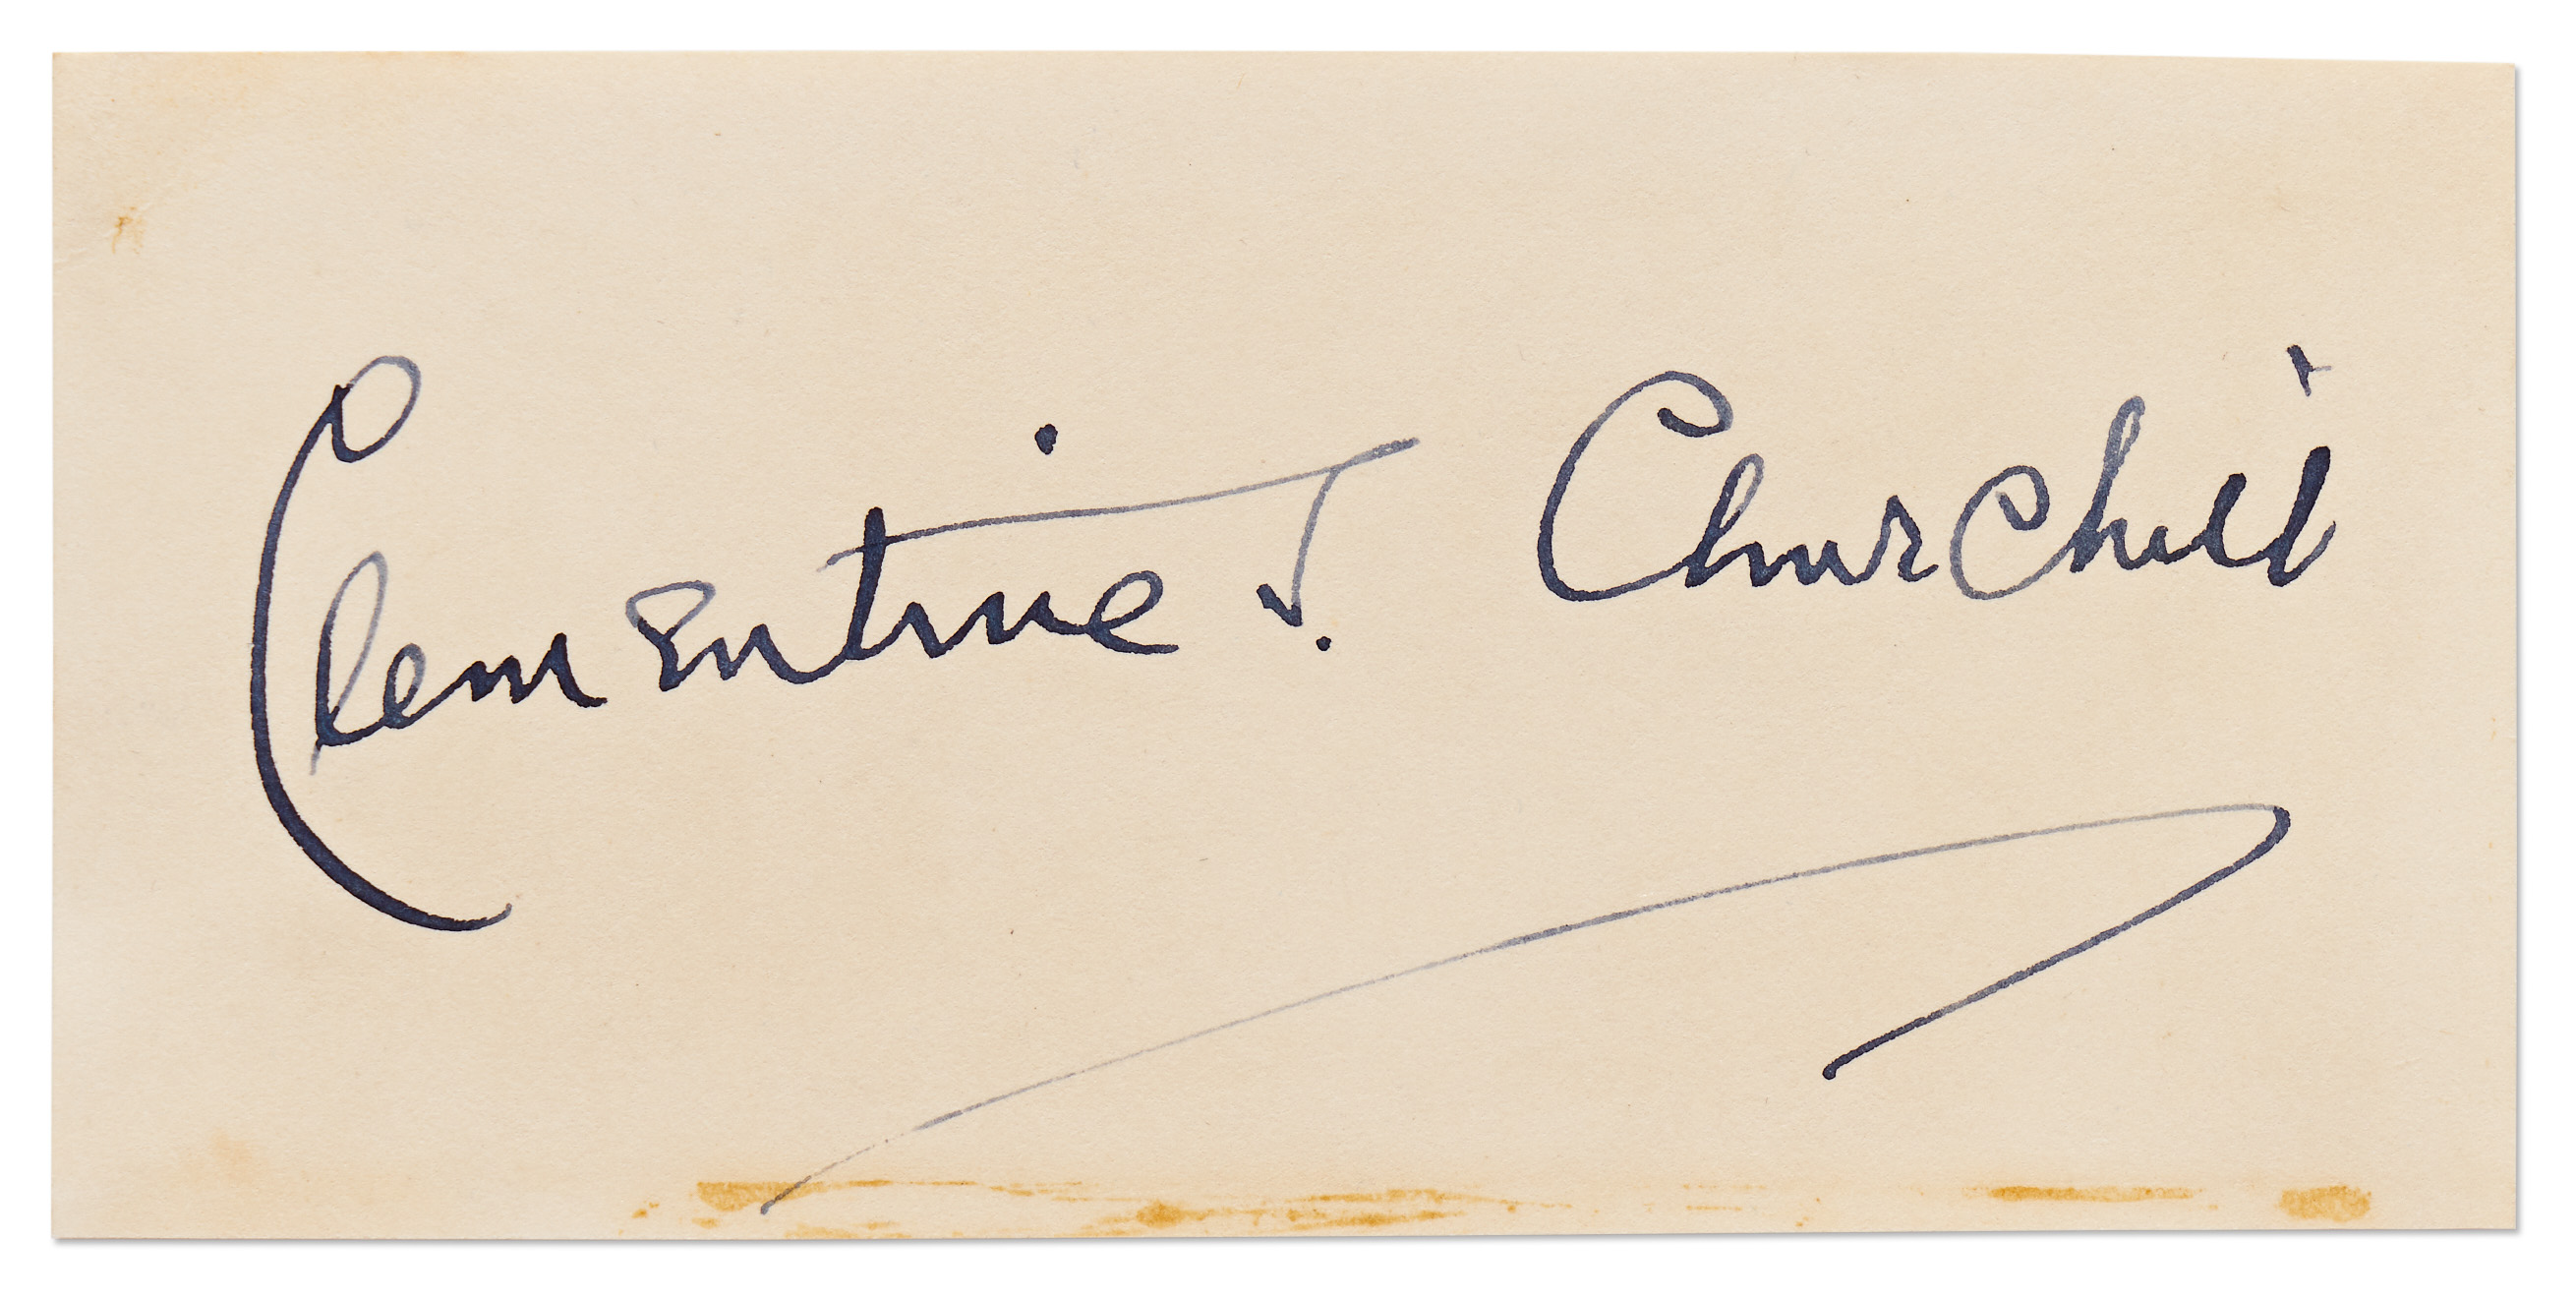 Clementine S. Churchill